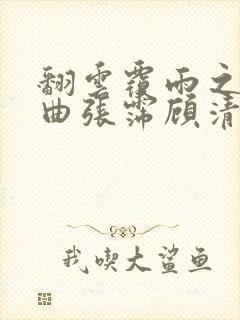 翻雲覆雨之
曲張霈顧清
我喫大鯊鱼